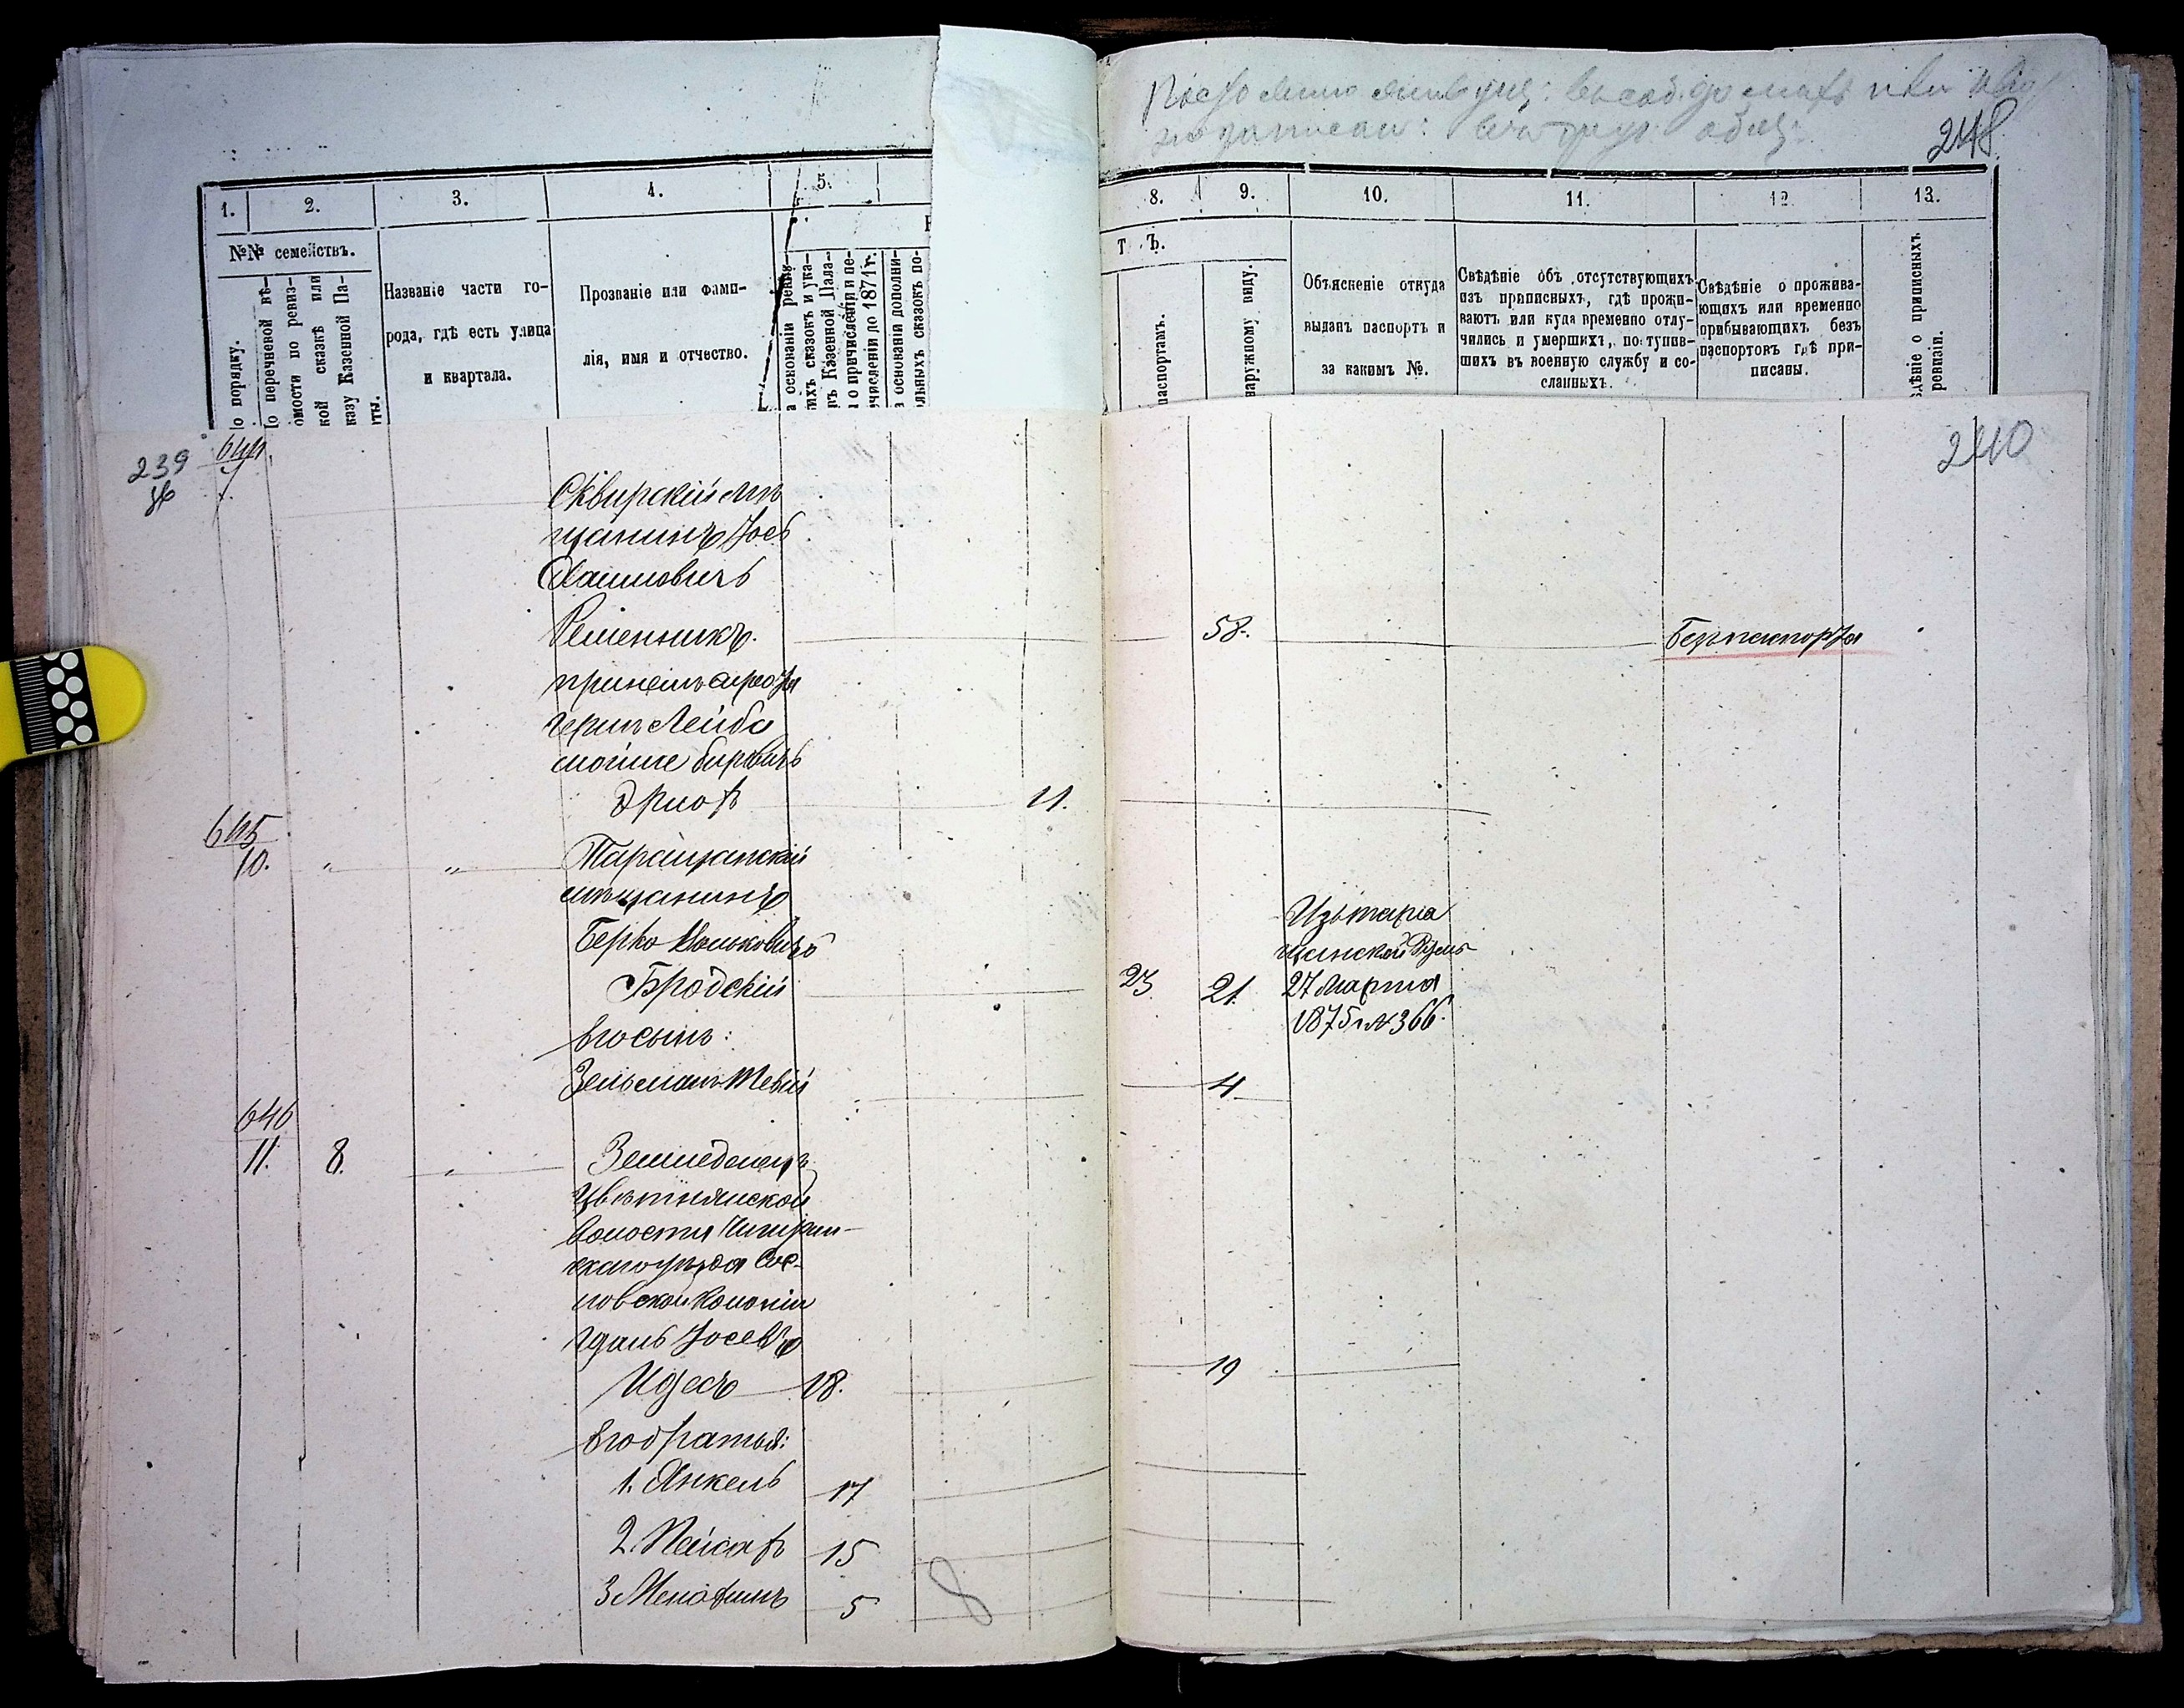 248
1. 2. 3. 4. 5.
8. 9. 10. 11. 12. 13.
№№ семействъ.
Т Ъ.
По порядку.
По перечневой вѣ-
домости по ревиз-
кой сказкѣ или
казу Казенной Па-
ты.
Названіе части го-
рода, гдѣ есть улица
и квартала.
Прозваніе или фами-
лія, имя и отчество.
а основаніи реви-
ихъ сказокъ и ука-
въ Казенной Пала-
о причисленіи и пе-
численіи до 1871 г.
а основаніи дополни-
льныхъ сказокъ по-
паспортамъ.
наружному виду.
Объясненіе откуда
выданъ паспортъ и
за какимъ №.
Свѣдѣніе объ отсутствующихъ
изъ приписныхъ, гдѣ прожи-
ваютъ или куда временно отлу-
чились и умершихъ, поступив-
шихъ въ военную службу и со-
сланныхъ.
Свѣдѣніе о прожива-
ющихъ или временно
прибывающихъ безъ
паспортовъ гдѣ при-
писаны.
ѣдѣніе о приписныхъ
ревизіи.
240
239
644
Сквирскій мѣ
щанинъ Іось
Хаимовичъ
Ременникъ. 58. Безъ паспорта
пріемъ сирота
Лейба
Мойше Берковичъ
11.
645
10. " " Таращанскій
мѣщанинъ
Берко
Бродскій 23 21.
Изъ Тара
щанской Думы
27 Марта
1875 г. № 366.
его сынъ:
Зельманъ Тевій 4
646
11. 8. " Земледѣлецъ
Цвѣтнянской
волости Чигирин-
скаго уѣзда Сос-
новской Колоніи
Іосевъ
18. 19
его братья:
1. Янкель 17
2. Пейсахъ 15
3 Менахимъ 5
8